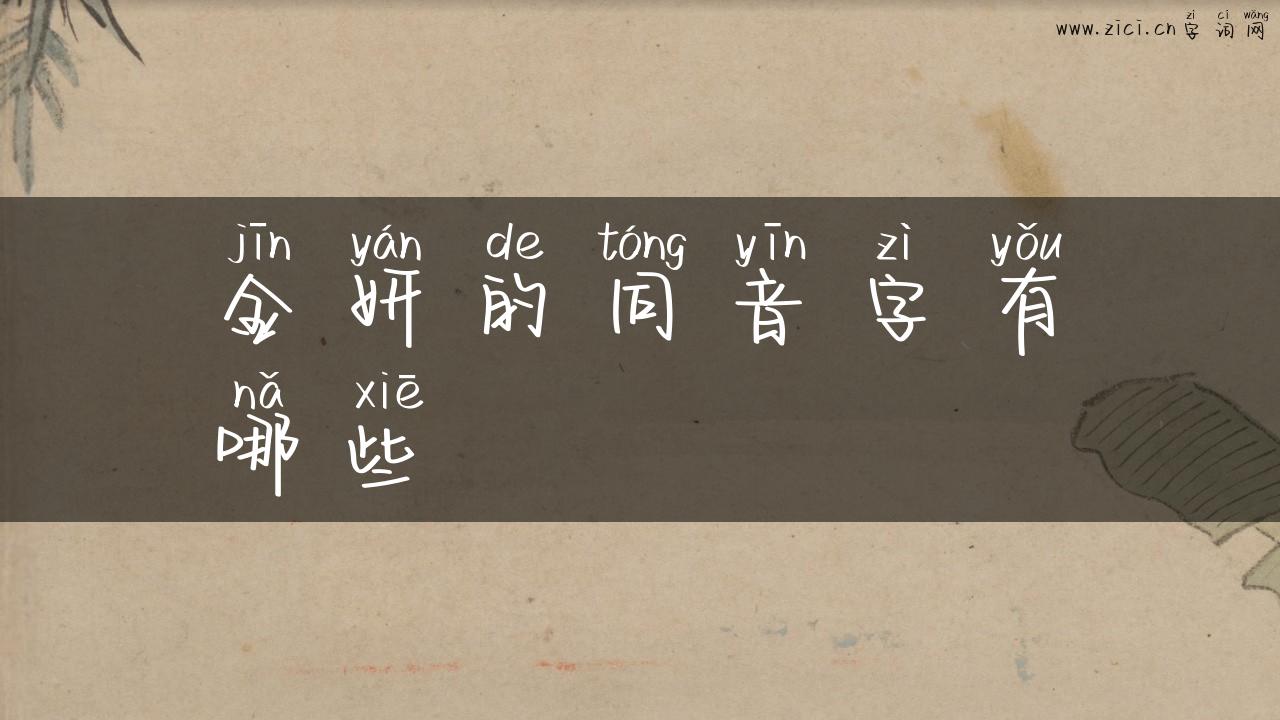 zì cí wǎng
www.zici.cn 字 词 网
jīn yán de tóng yīn zì yǒu
金 妍 的 同 音 字 有
nǎ xiē
哪 些